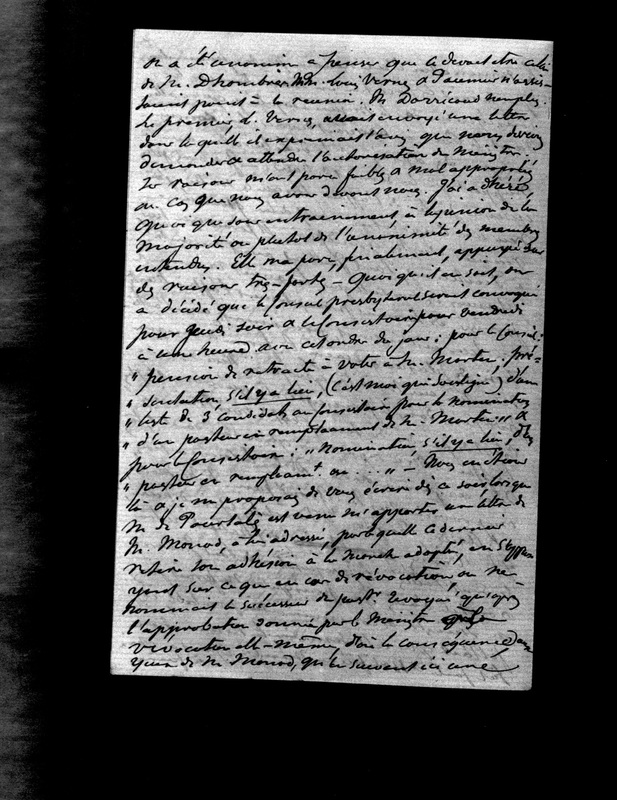 on a été unanime à penser que ce devait être celui
de M. Dhombres. MM. Louis Vernes & d'Aumier n'assis-
taient point à la réunion. M.
le premier L. Vernes, avait envoyé une lettre
dans laquelle il exprimait l'avis que nous devions
demander & attendre l'autorisation du Ministre.
Ses raisons m'ont paru faibles & mal appropriées
au cas que nous avons devant nous. J'ai adhéré,
quoique sans entrainement, à l'opinion de la
majorité ou plutot de l'unanimité des membres
entendus. Elle m'a paru, finalement, appuyée sur
des raisons très-fortes — Quoiqu'il en soit, on
a décidé que le Conseil presbytéral serait convoqué
pour jeudi soir & le Consistoire pour vendredi
à une heure avec cet ordre du jour; pour le Conseil:
" pension de retraite à voter à M. Martin, pré-
" sentation s'il y a lieu, (c'est moi qui souligne) d'une
" liste de 3 candidats au Consistoire pour la nomination
" d'un pasteur en remplacement de M. Martin " &
pour le Consistoire: " Nomination, s'il y a lieu, d'un
" pasteur en remplacemt. de ... " — Nous en étions
là & je me proposais de vous écrire dès ce soir lorsque
M. de Pourtalès est venu m'apporter une lettre de
M. Monod, à lui adressée, par laquelle ce dernier
retire son adhésion à la marche adoptée, en s'appu-
yant sur ce que en cas de révocation on ne
nommait le successeur du pastr. révoqué qu'après
l'approbation donnée par le Ministre
révocation elle-même, d'où la conséquence, aux
yeux de M. Monod, qu'en suivant ici une